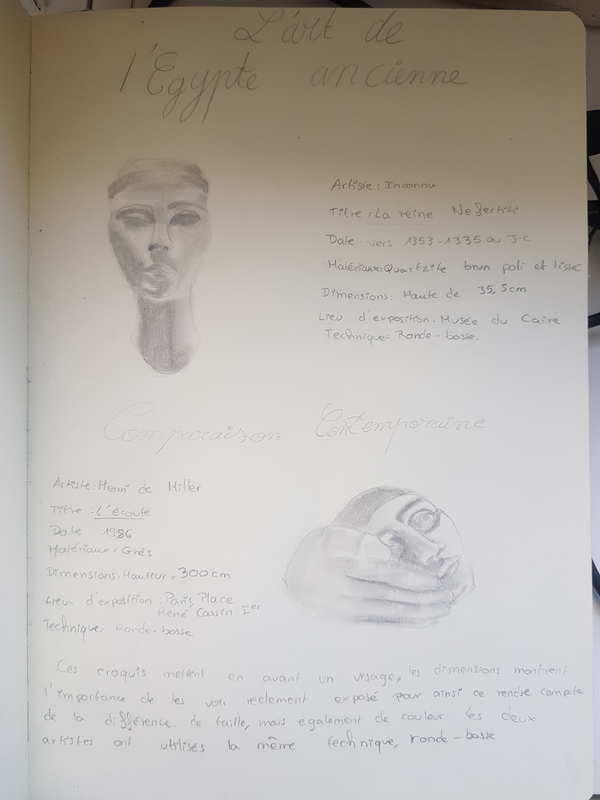 L'art de
l'Egypte ancienne
Artiste : Inconnu
Titre : La reine Nefertiti
Date : vers 1353-1335 av J-C
Matériaux: Quartzite brun poli et lissé
Dimensions: Haute de 35,5cm
Lieu d'exposition: Musée du Caire
Technique: Ronde-bosse.
Comparaison Contemporaine
Artiste: Henri de Miller
Titre : L'écoute
Date 1986
Matériaux: Grés
Dimensions: Hauteur = 300cm
Lieux d'exposition : Paris, Place
René Cassin Ier
Technique: Ronde-bosse
Ces croquis mettent en avant un visage, les dimensions montrent
l'importance de les voir réelement exposé pour ainsi ce rendre compte
de la différence de taille, mais également de couleur. Les deux
artistes ont utilisés la même technique, ronde-bosse.